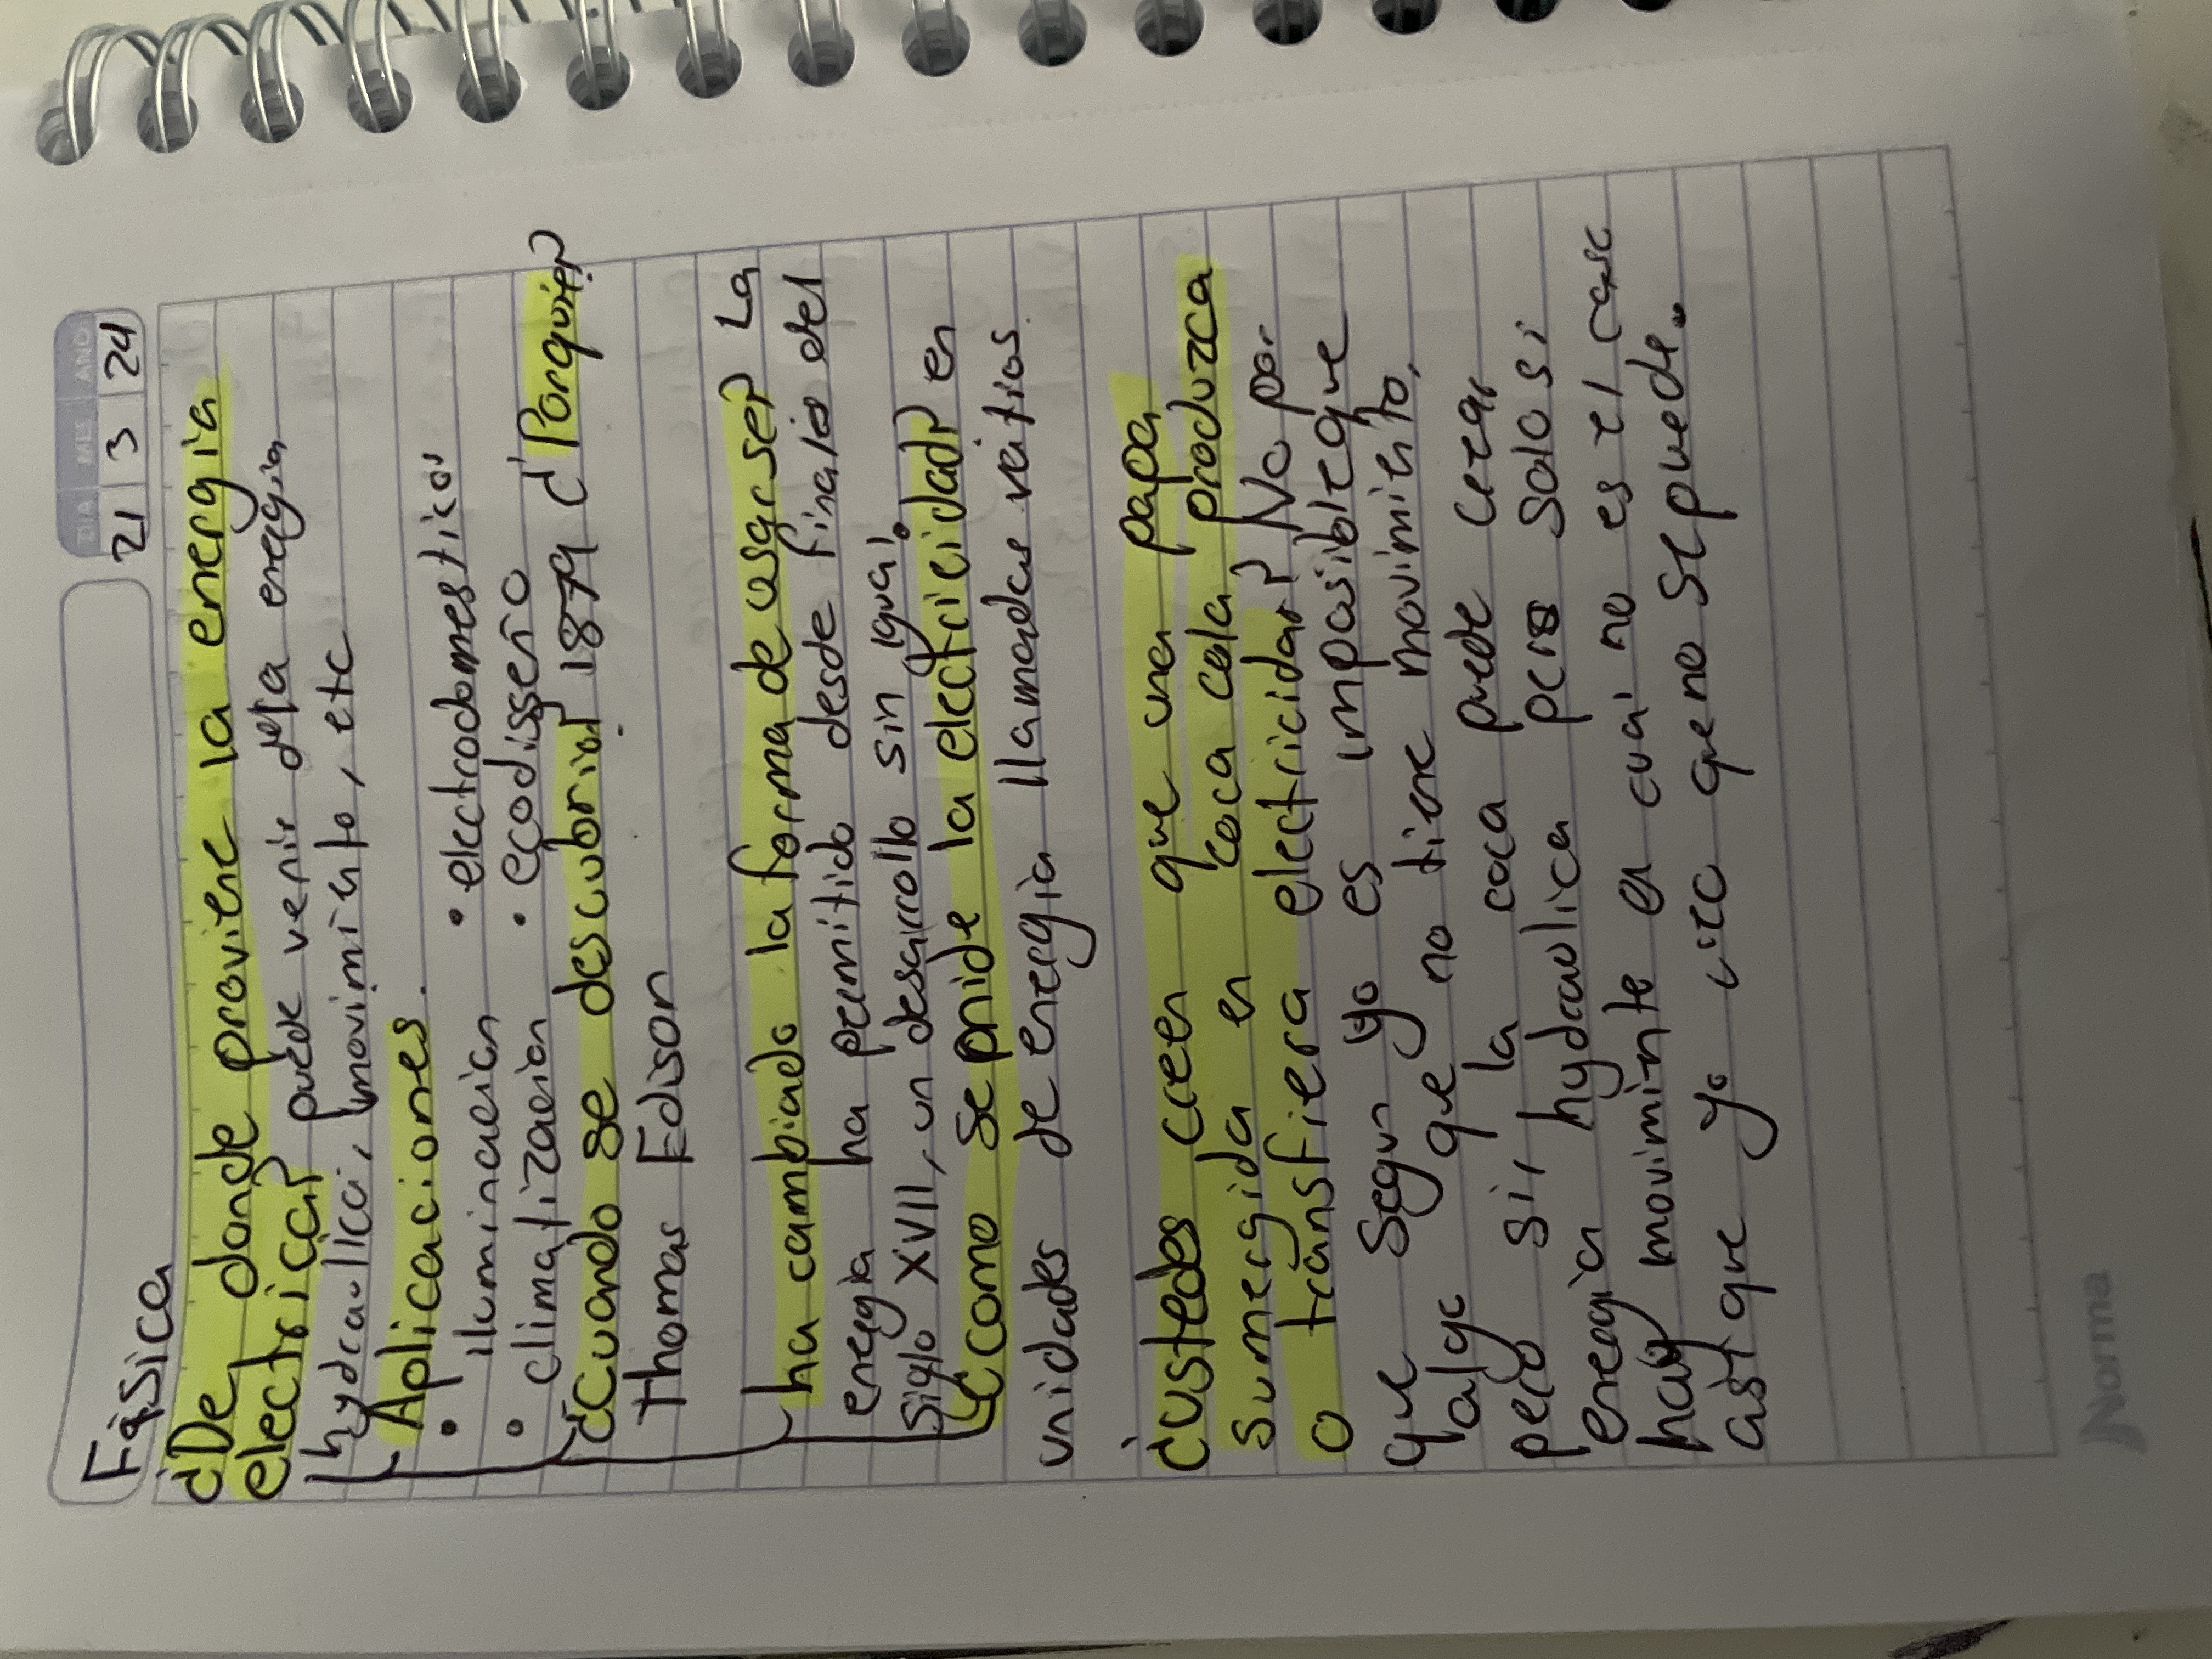 Fisica
DIA MES AÑO
21 3 24
¿De donde proviene la energia
electrica? puede venir de la energia
hydraulica, movimiento, etc
Aplicaciones.
• iluminacion • electrodomesticos
• climatizacion • ecodisseño
¿Cuando se descubrio? 1879 ¿Porquien?
Thomas Edison
ha cambiado la forma de usarse? La
energia ha permitido desde finales del
Siglo XVII, un desarrollo sin igual.
¿Como se mide la electricidad? en
unidades de energia llamadas vatios
¿ustedes creen que una papa
sumergida en coca cola produzca
o transfiera electricidad? No por
que segun yo es imposible que
algo que no tiene movimiento,
pero si, la coca puede crear
energia hydraulica pero solo si
hay movimiente en cual no es el caso
asi que yo creo que no se puede.
Norma